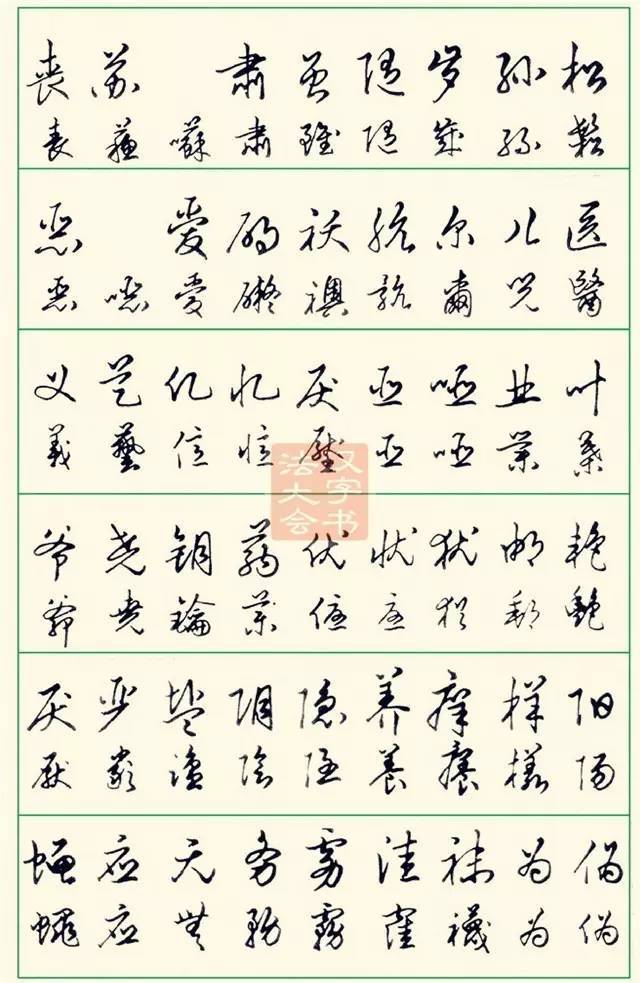 丧 苏 肃 虽 随 岁 孙 松
喪 蘇 囌 肅 雖 隨 歲 孫 鬆
恶 爱 碍 袄 肮 尔 儿 医
惡 噁 愛 礙 襖 骯 爾 兒 醫
义 艺 亿 忆 压 亚 哑 业 叶
義 藝 億 憶 壓 亞 啞 業 葉
汉字书法大会
爷 尧 钥 药 优 忧 犹 邮 艳
爺 堯 鑰 藥 優 憂 猶 郵 艷
厌 严 盐 阴 隐 养 痒 样 阳
厭 嚴 鹽 陰 隱 養 癢 樣 陽
蝇 应 无 务 雾 洼 袜 为 伪
蠅 應 無 務 霧 窪 襪 為 偽